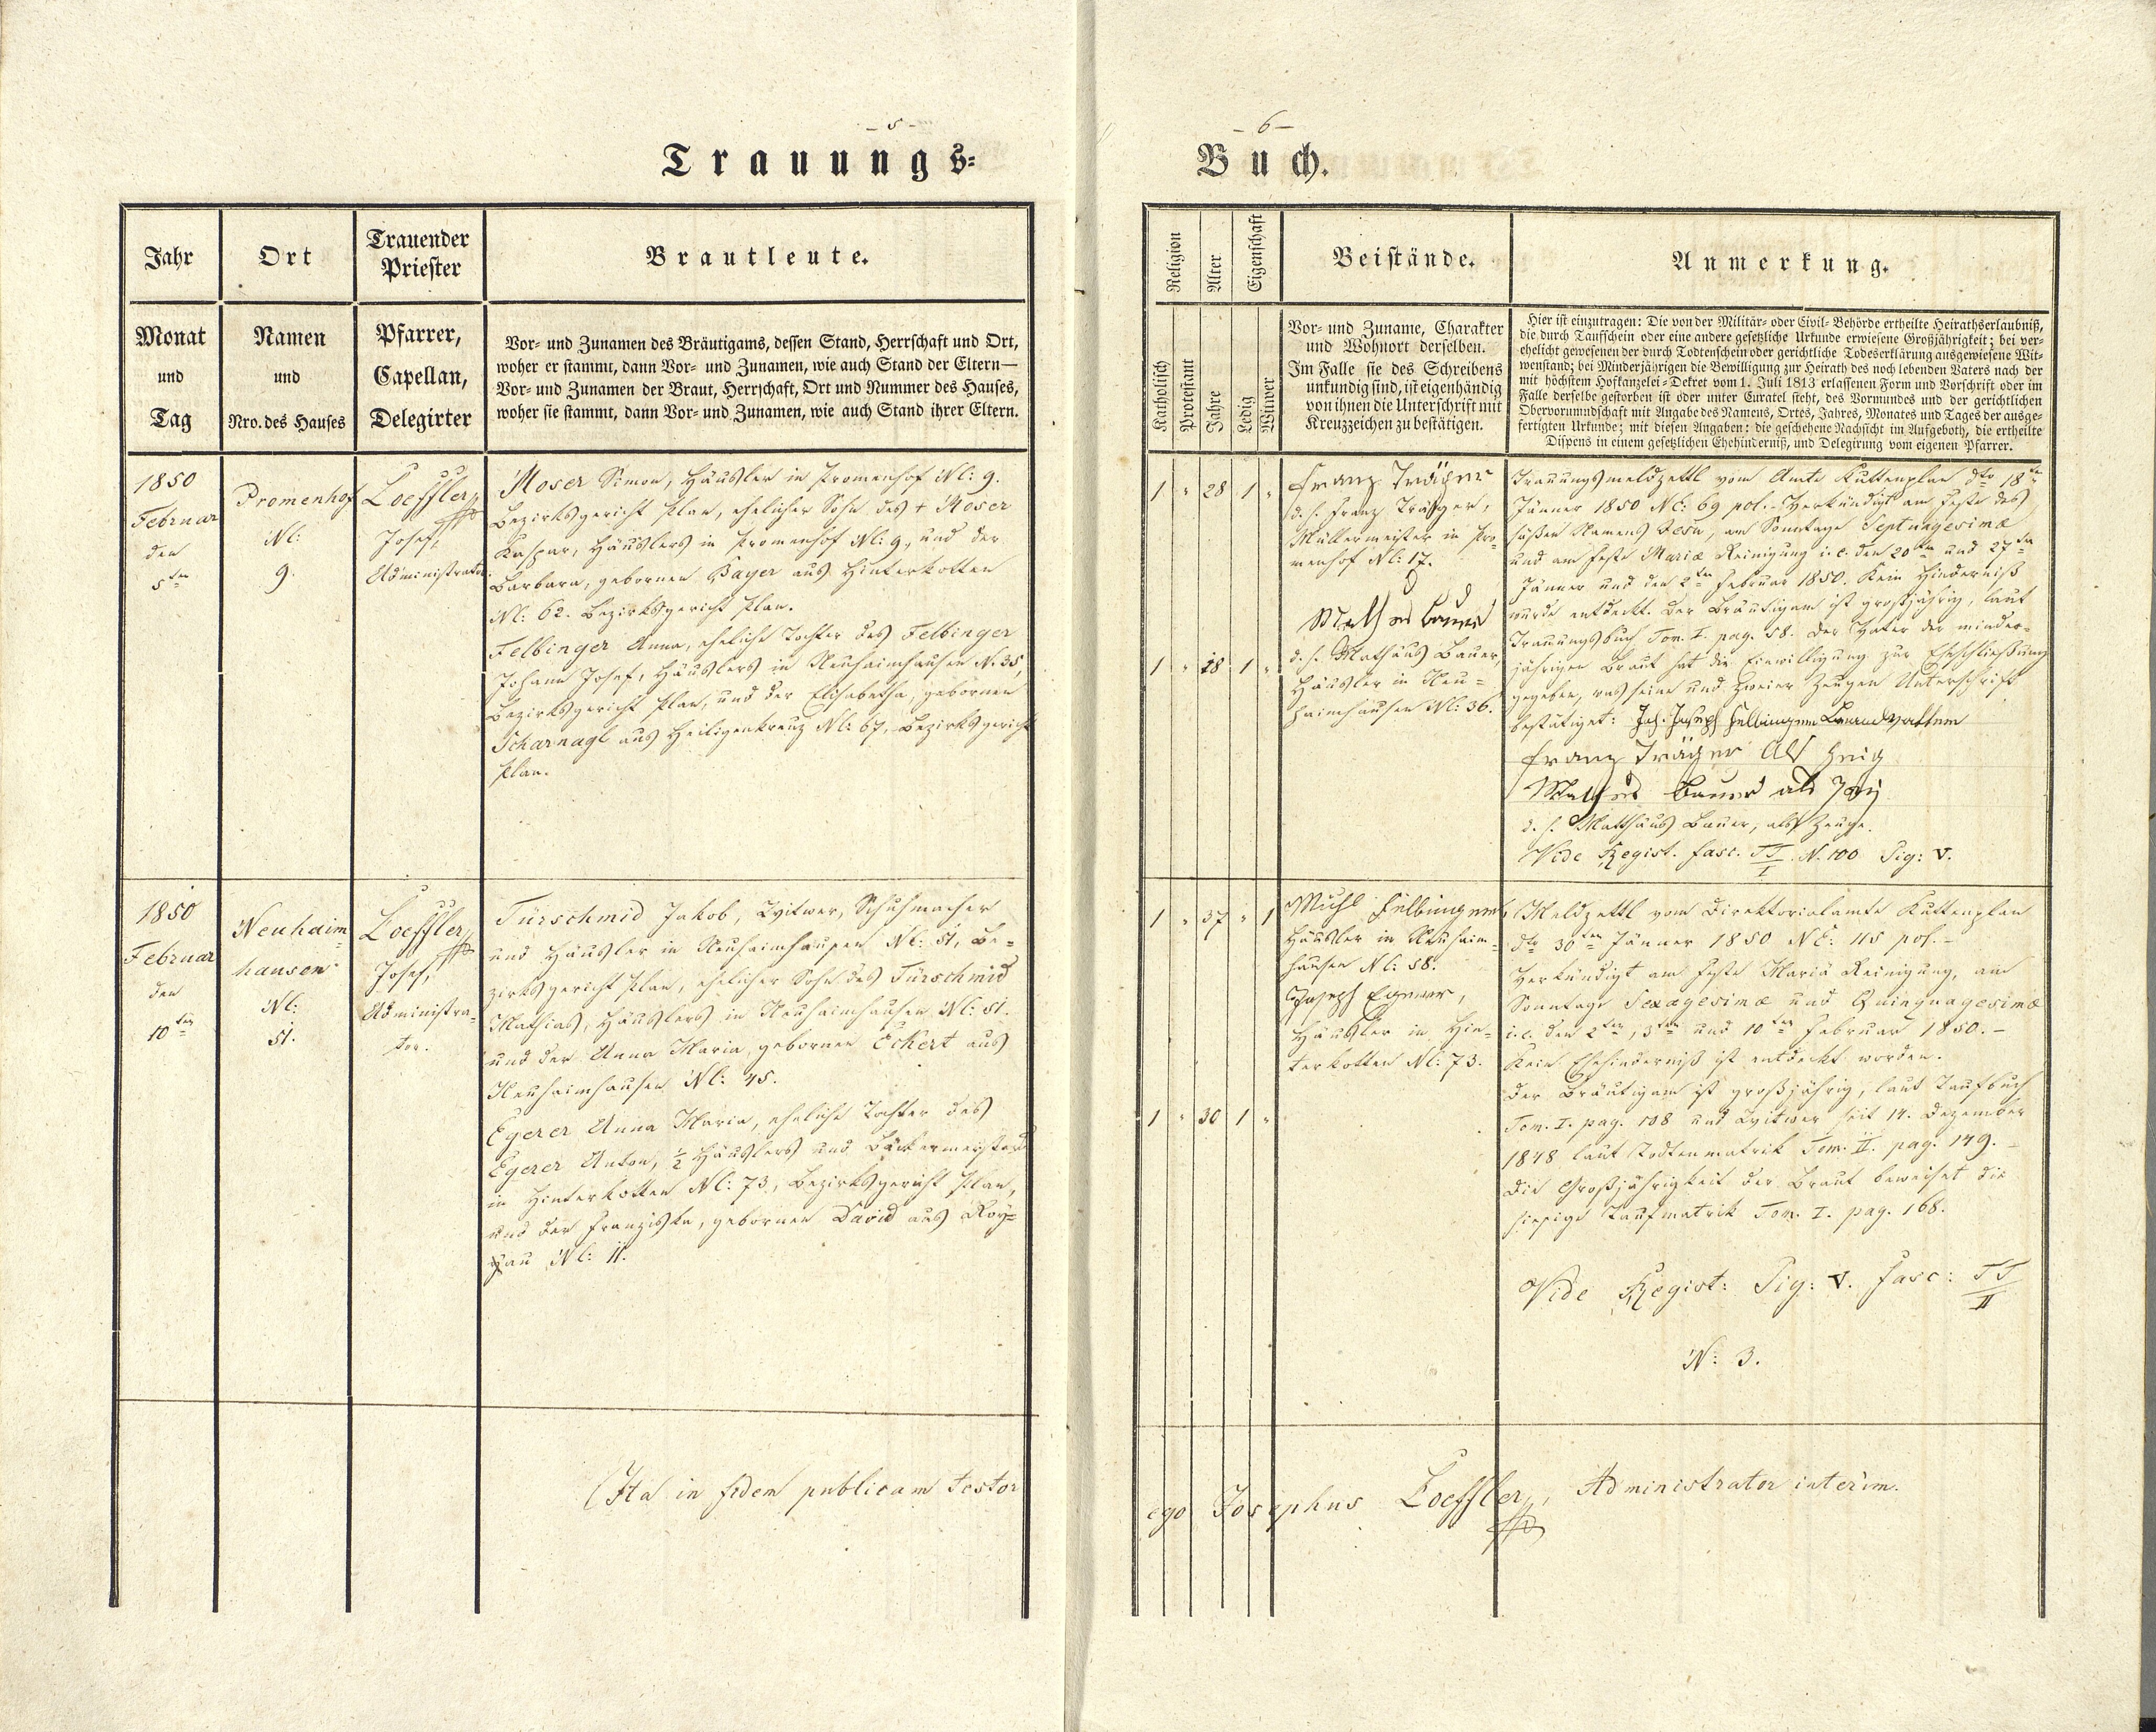 - 5 -
Trauungs-
Jahr
Ort
Trauender
Priester
Brautleute.
Monat
und
Tag
Namen
und
Nro. des Hauses
Pfarrer,
Capellan,
Delegirter
Vor- und Zunamen des Bräutigams, dessen Stand, Herrschaft und Ort,
woher er stammt, dann Vor- und Zunamen, wie auch Stand der Eltern—
Vor- und Zunamen der Braut, Herrschaft, Ort und Nummer des Hauses,
woher sie stammt, dann Vor- und Zunamen, wie auch Stand ihrer Eltern.
1850
Februar
den
5ten
Promenhof
Nl:
9.
Loeffler
Josef,
Administrator
Moser Simon, Häusler in Promenhof Nl: 9.
Bezirksgericht Plan, ehelicher Sohn des + Moser
Kaspar, Häuslers in Promenhof Nl: 9, und der
Barbara, gebornen Bayer aus Hinterkotten
Nl: 62. Bezirksgericht Plan.
Felbinger Anna, eheliche Tochter des Felbinger
Johann Josef, Häuslers in Neuhaimhausen N. 35,
Bezirksgericht Plan, und der Elisabetha, gebornen
Scharnagl aus Heiligenkreuz Nl: 67, Bezirksgericht
Plan.
1850
Februar
den
10ten
Neuhaim-
hausen
Nl:
51.
Loeffler
Josef,
Administra-
tor.
Türschmid Jakob, Witwer, Schuhmacher
und Häusler in Neuhaimhausen Nl: 51, Be-
zirksgericht Plan, ehelicher Sohn des Türschmid
Mathias, Häuslers in Neuhaimhausen Nl: 51.
und der Anna Maria, gebornen Eckert aus
Neuhaimhausen Nl: 45.
Egerer Anna Maria, eheliche Tochter des
Egerer Anton, ½ Häuslers und Bäckermeisters
in Hinterkotten Nl: 73, Bezirksgericht Plan,
und der Franziska, gebornen David aus Roy-
au Nl: 11.
Ita in fidem publicam testor
- 6 -
Buch.
Religion
Alter
Eigenschaft
Beistände.
Anmerkung.
Katholisch
Protestant
Jahre
Ledig
Witwer
Vor- und Zuname, Charakter
und Wohnort derselben.
Im Falle sie des Schreibens
unkundig sind, ist eigenhändig
von ihnen die Unterschrift mit
Kreuzzeichen zu bestätigen.
Hier ist einzutragen: Die von der Militär- oder Civil-Behörde ertheilte Heirathserlaubniß,
die durch Taufschein oder eine andere gesetzliche Urkunde erwiesene Großjährigkeit; bei ver-
ehelicht gewesenen der durch Todtenschein oder gerichtliche Todeserklärung ausgewiesene Wit-
wenstand; bei Minderjährigen die Bewilligung zur Heirath des noch lebenden Vaters nach der
mit höchstem Hofkanzelei-Dekret vom 1. Juli 1813 erlassenen Form und Vorschrift oder im
Falle derselbe gestorben ist oder unter Curatel steht, des Vormundes und der gerichtlichen
Obervormundschaft mit Angabe des Namens, Ortes, Jahres, Monates und Tages der ausge-
fertigten Urkunde; mit diesen Angaben: die geschehene Nachsicht im Aufgeboth, die ertheilte
Dispens in einem gesetzlichen Ehehinderniß, und Delegirung vom eigenen Pfarrer.
1 " 28 1 "
1 " 18 1 "
Franz Träger
d. h. Franz Träger,
Müllermeister in Pro-
menhof Nl: 17.
Mathes Bauer
d. h. Mathäus Bauer,
Häusler in Neu-
haimhausen Nl: 36.
Trauungsmeldzettl vom Amte Kuttenplan dto 18ten
Jänner 1850 NE: 69 pol. - Verkündigt am Feste des
süßen Namens Jesu, am Sonntage Septuagesimæ
und am Feste Mariæ Reinigung i. e. den 20ten und 27ten
Jänner und den 2ten Februar 1850. Kein Hinderniß
wurde entdeckt. Der Bräutigam ist großjährig, laut
Trauungsbuch Tom. I. pag. 58. Der Vater der minder-
jährigen Braut hat die Einwilligung zur Eheschließung
gegeben, was seine und zweier Zeugen Unterschrift
bestätiget: Joh. Joseph Felbinger Brautvatter
Franz Träger Als Zeig
Mathes Bauer als
d. h. Matthäus Bauer, als Zeuge.
Vide Regist. fasc. TT/I N. 100 Sig: V.
1 " 37 " 1
1 " 30 1 "
Michl Felbinger
Häusler in Neuhaim-
hausen Nl: 58.
Joseph Egerer,
Häusler in Hin-
terkotten Nl: 73.
Meldzettl vom Direktorialamte Kuttenplan
dto 30ten Jänner 1850 NE: 115 pol. -
Verkündigt am Feste Mariä Reinigung, am
Sonntage Sexagesimæ und Quinquagesimæ
i. e. den 2ten, 3ten und 10ten Februar 1850. -
Kein Ehehinderniß ist entdeckt worden.
Der Bräutigam ist großjährig, laut Taufbuch
Tom. I. pag. 108 und Witwer seit 14. Dezember
1848 laut Todtenmatrik Tom. II. pag. 149. -
Die Großjährigkeit der Braut beweiset die
hiesige Taufmatrik Tom. I. pag. 168.
Vide Regist: Sig: V. fasc: TT/II
N: 3.
ego Josephus Loeffler, Administrator interim.